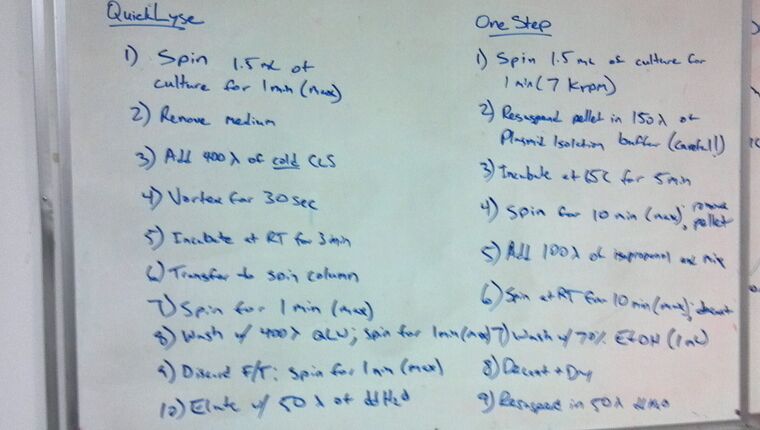 QuickLyse
1) Spin 1.5 mL of
culture for 1 min (max)
2) Remove medium
3) Add 400λ of cold CLS
4) Vortex for 30 sec
5) Incubate at RT for 3 min
6) Transfer to spin column
7) Spin for 1 min (max)
8) Wash w/ 400λ QLW; spin for 1 min (max)
9) Discard F/T; Spin for 1 min (max)
10) Elute w/ 50λ of ddH2O
One Step
1) Spin 1.5 mL of culture for
1 min (7 Krpm)
2) Resuspend pellet in 150λ of
Plasmid Isolation buffer (careful!)
3) Incubate at 65C for 5 min
4) Spin for 10 min (max); remove
pellet
5) Add 100λ of isopropanol and mix
6) Spin at RT for 10 min (max); decant
7) Wash w/ 70% EtOH (1 mL)
8) Decant + Dry
9) Resuspend in 50λ ddH2O